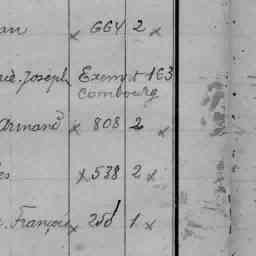 an x 664 2 x
rie. Joseph Exempt 163
Combourg
Armand x 808 2 x
es x 538 2 x
. François x 258 1 x